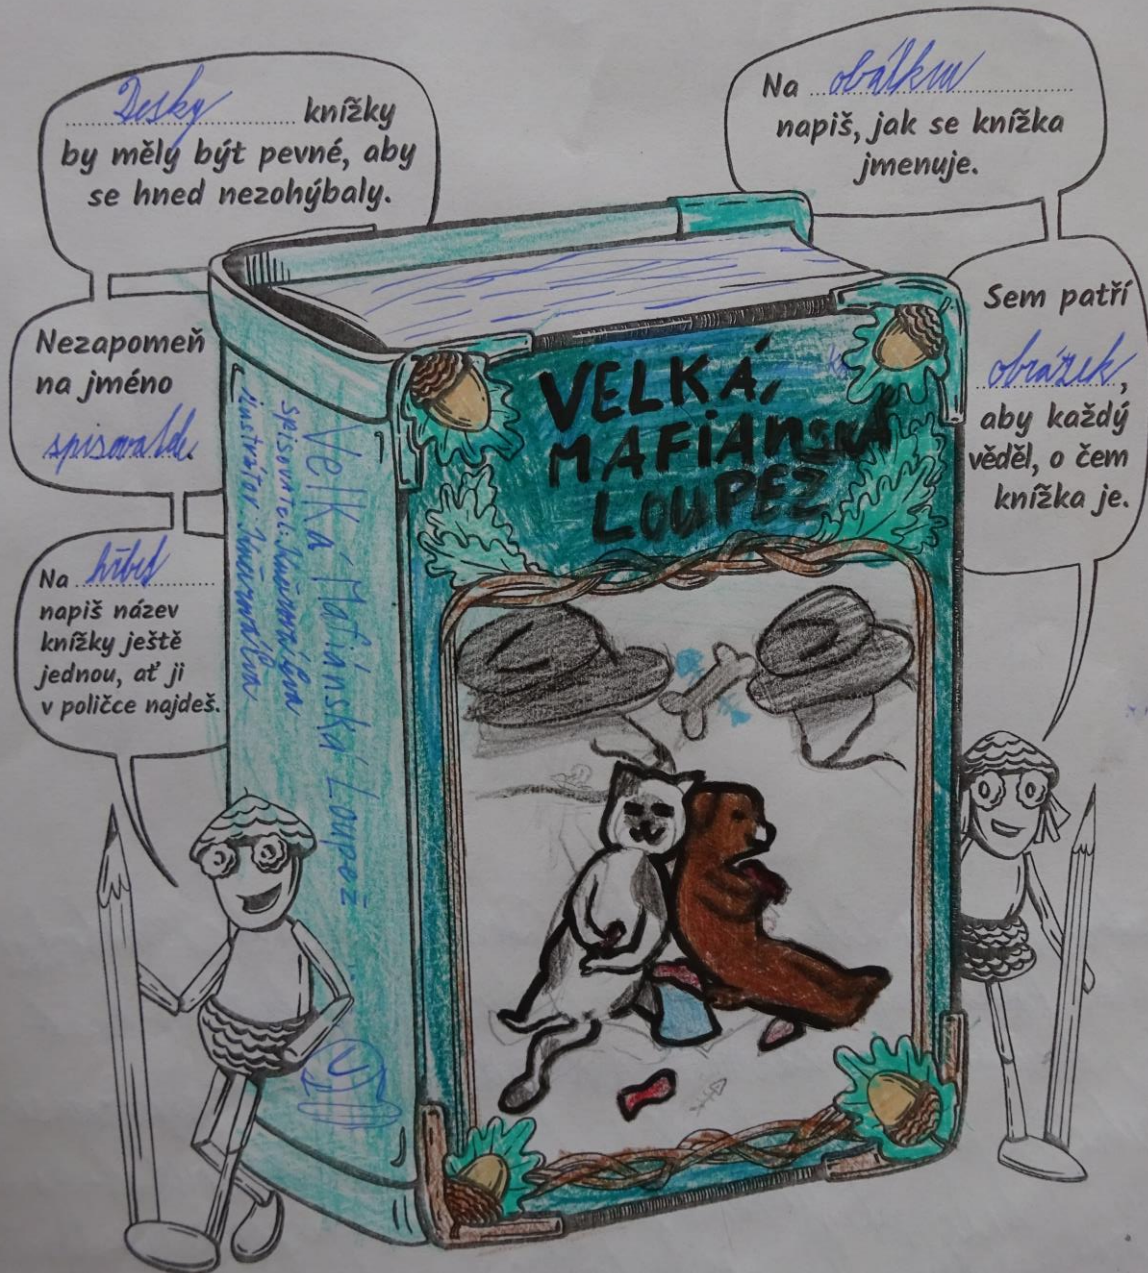 Desky knížky
by měly být pevné, aby
se hned nezohýbaly.
Na obálku
napiš, jak se knížka
jmenuje.
Nezapomeň
na jméno
spisovatele.
Sem patří
obrázek,
aby každý
věděl, o čem
knížka je.
Na hřbet
napiš název
knížky ještě
jednou, ať ji
v poličce najdeš.
VELKÁ,
MAFIÁNSKÁ
LOUPEZ
Velká Mafiánská Loupež
spisovatel: